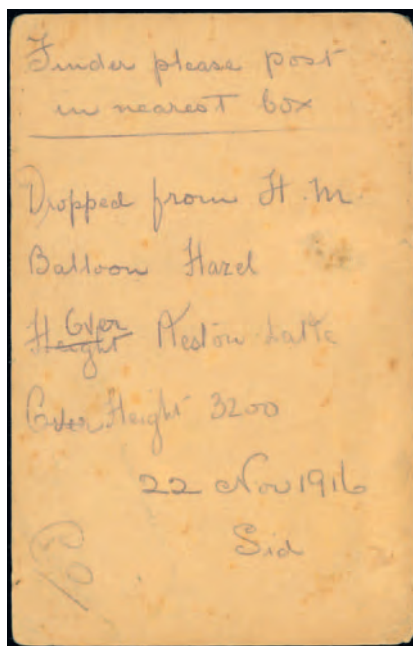 Finder please post
in nearest box
Dropped from H.M.
Balloon Hazel
Over
Height
Over Height 3200
22 Nov 1916
Sid